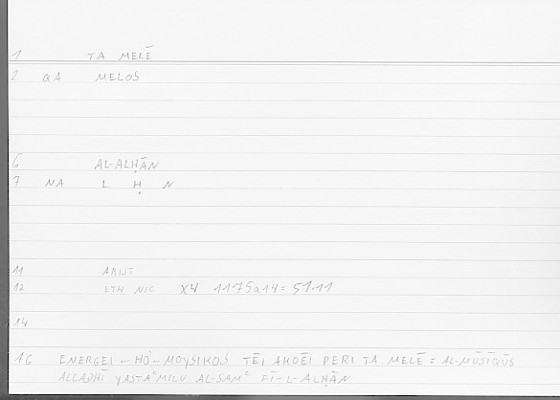 1 TA MELĒ
2 QA MELOS
6 AL-ALḤĀN
7 NA L Ḥ N
11 ARIST
12 ETH NIC X4 1175a14 = 51.11
14
16 ENERGEI - HO - MOYSIKOS TĒI AKOĒI PERI TA MELĒ = AL-MŪSĪQŪS
ALLADHĪ YASTAʿMILU AL-SAMʿ FĪ-L-ALḤĀN